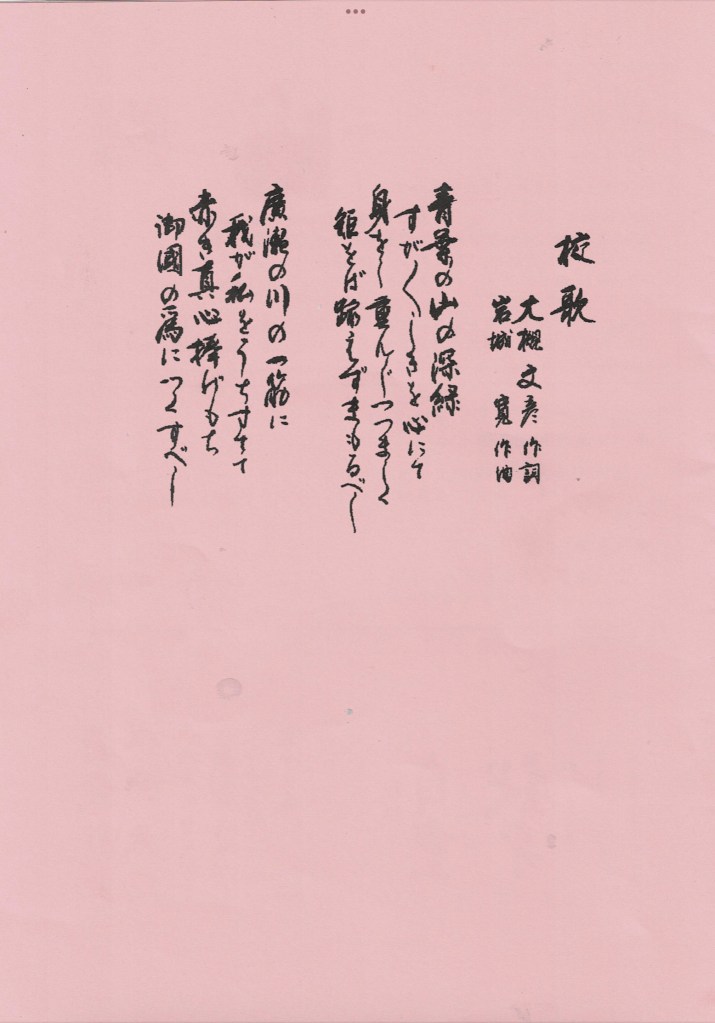 校歌
大槻文彦 作詞
岩城寛 作曲
青葉の山の深緑
すが〱しきを心にて
身をし重んじつつましく
矩をば踰えずまもるべし
廣瀬の川の一筋に
我が私をうちすてて
赤き真心捧げもち
御國の為につくすべし